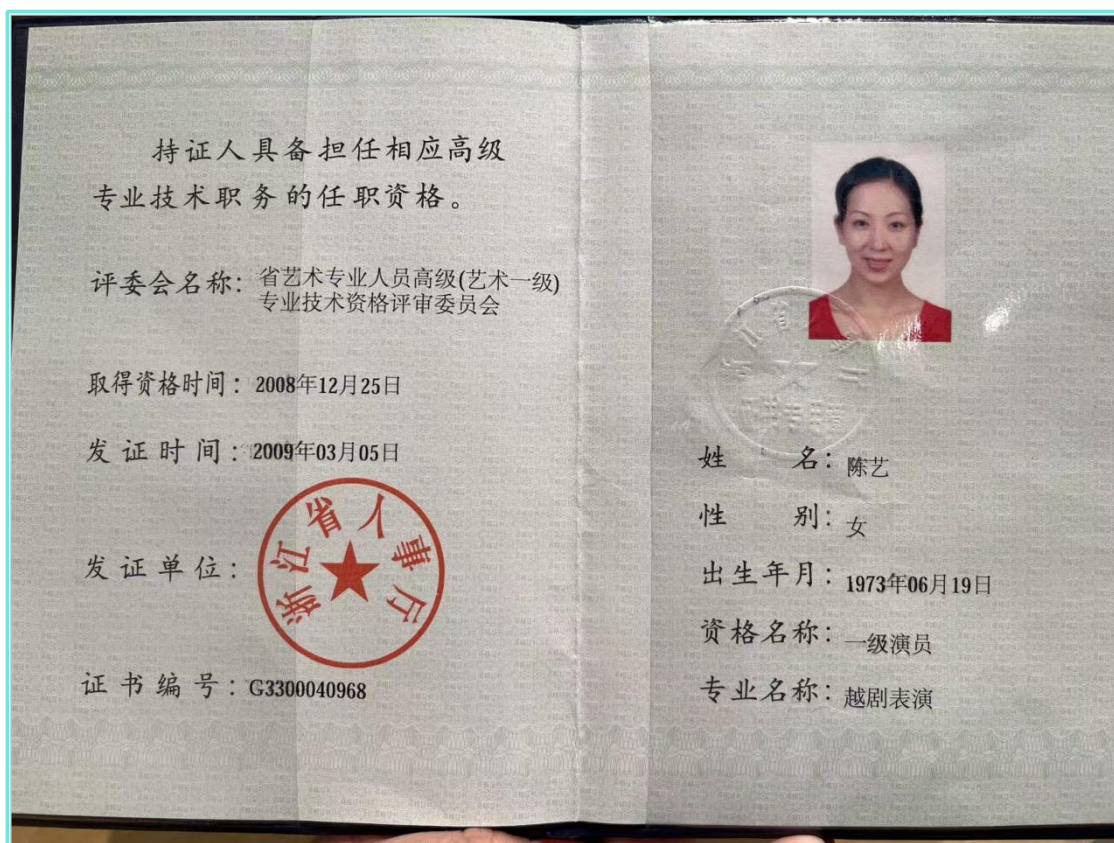 持证人具备担任相应高级
专业技术职务的任职资格。
评委会名称：省艺术专业人员高级(艺术一级)
专业技术资格评审委员会
取得资格时间：2008年12月25日
发证时间：2009年03月05日
发证单位：
浙江省人事厅
证书编号：G3300040968
姓名：陈艺
性别：女
出生年月：1973年06月19日
资格名称：一级演员
专业名称：越剧表演